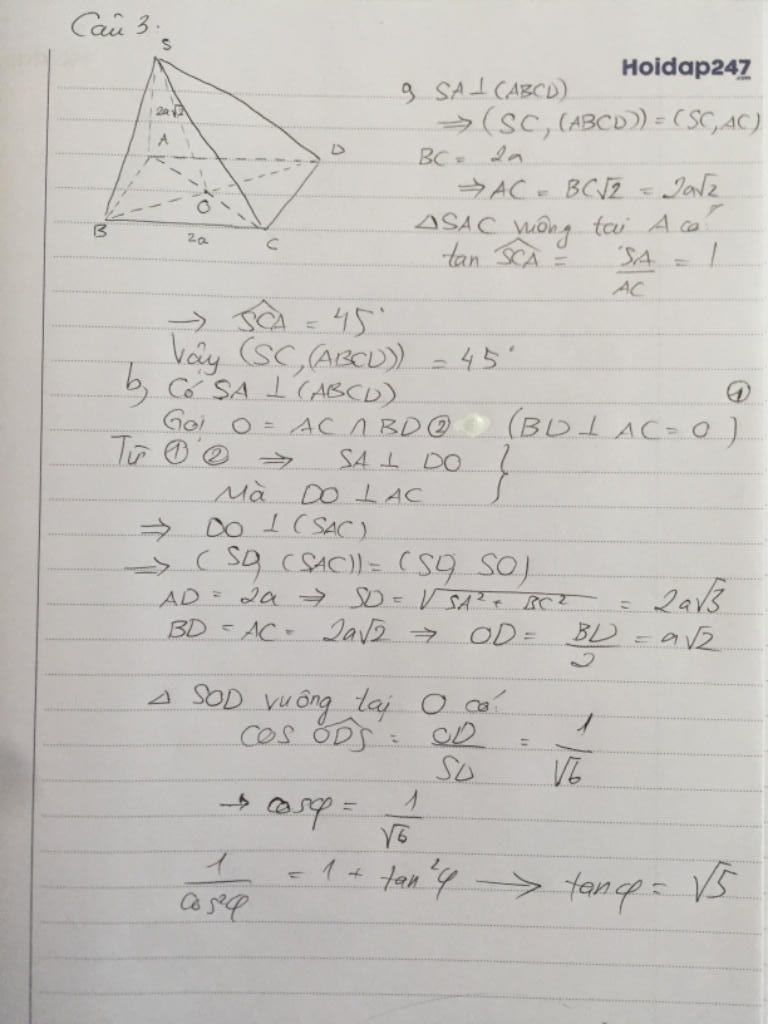 Câu 3:
Hoidap247
S
2a√2
A
D
O
B
2a
C
a, SA ⊥ (ABCD)
⇒ (SC, (ABCD)) = (SC, AC)
BC = 2a
⇒ AC = BC√2 = 2a√2
△SAC vuông tại A có
tan SCA = SA/AC = 1
→ SCA = 45°
Vậy (SC, (ABCD)) = 45°
b, Có SA ⊥ (ABCD) ①
Gọi O = AC ∩ BD ② (BD ⊥ AC = O)
Từ ① ② ⇒ SA ⊥ DO }
Mà DO ⊥ AC
⇒ DO ⊥ (SAC)
⇒ (SD, (SAC)) = (SD, SO)
AD = 2a ⇒ SD = √SA² + BC² = 2a√3
BD = AC = 2a√2 ⇒ OD = BD/2 = a√2
△ SOD vuông tại O có
cos ODS = OD/SD = 1/√6
→ cosφ = 1/√6
1/cos²φ = 1 + tan²φ → tanφ = √5